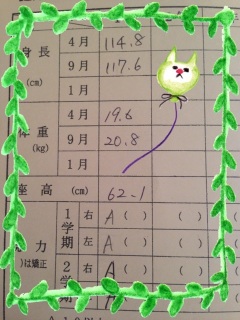 身長 (cm) 4月 114.8
9月 117.6
1月
体重 (kg) 4月 19.6
9月 20.8
1月
座高 (cm) 62.1
力 )は矯正 1学期 右 A ( ) ( )
左 A ( ) ( )
2学期 右 A ( ) ( )